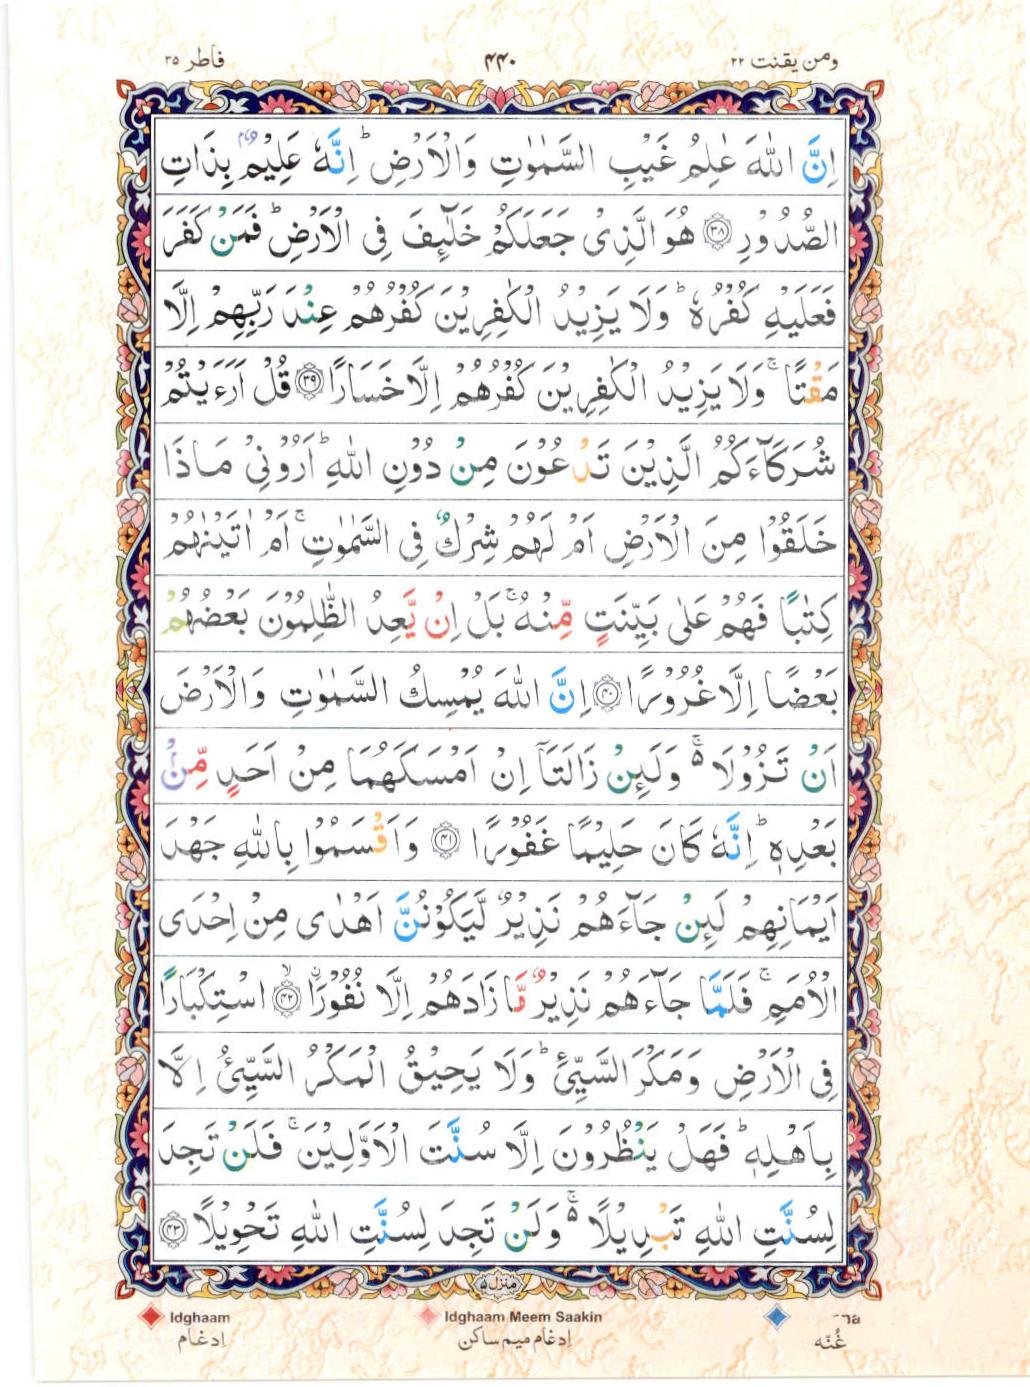 ومن یقنت ۲۲
۴۴۰
فاطر ۳۵
اِنَّ اللّٰهَ عٰلِمُ غَیْبِ السَّمٰوٰتِ وَالْاَرْضِ ؕ اِنَّهٗ عَلِیْمٌۢ بِذَاتِ
الصُّدُوْرِ ۝۳۸ هُوَ الَّذِیْ جَعَلَكُمْ خَلٰٓئِفَ فِی الْاَرْضِ ؕ فَمَنْ كَفَرَ
فَعَلَیْهِ كُفْرُهٗ ؕ وَلَا یَزِیْدُ الْكٰفِرِیْنَ كُفْرُهُمْ عِنْدَ رَبِّهِمْ اِلَّا
مَقْتًا ۚ وَلَا یَزِیْدُ الْكٰفِرِیْنَ كُفْرُهُمْ اِلَّا خَسَارًا ۝۳۹ قُلْ اَرَءَیْتُمْ
شُرَكَآءَكُمُ الَّذِیْنَ تَدْعُوْنَ مِنْ دُوْنِ اللّٰهِ ؕ اَرُوْنِیْ مَاذَا
خَلَقُوْا مِنَ الْاَرْضِ اَمْ لَهُمْ شِرْكٌ فِی السَّمٰوٰتِ ۚ اَمْ اٰتَیْنٰهُمْ
كِتٰبًا فَهُمْ عَلٰی بَیِّنَتٍ مِّنْهُ ۚ بَلْ اِنْ یَّعِدُ الظّٰلِمُوْنَ بَعْضُهُمْ
بَعْضًا اِلَّا غُرُوْرًا ۝۴۰ اِنَّ اللّٰهَ یُمْسِكُ السَّمٰوٰتِ وَالْاَرْضَ
اَنْ تَزُوْلَا ۚ۬ وَلَئِنْ زَالَتَاۤ اِنْ اَمْسَكَهُمَا مِنْ اَحَدٍ مِّنْۢ
بَعْدِهٖ ؕ اِنَّهٗ كَانَ حَلِیْمًا غَفُوْرًا ۝۴۱ وَاَقْسَمُوْا بِاللّٰهِ جَهْدَ
اَیْمَانِهِمْ لَئِنْ جَآءَهُمْ نَذِیْرٌ لَّیَكُوْنُنَّ اَهْدٰی مِنْ اِحْدَی
الْاُمَمِ ۚ فَلَمَّا جَآءَهُمْ نَذِیْرٌ مَّا زَادَهُمْ اِلَّا نُفُوْرَا ۝۴۲ۙ اسْتِكْبَارًا
فِی الْاَرْضِ وَمَكْرَ السَّیِّئِ ؕ وَلَا یَحِیْقُ الْمَكْرُ السَّیِّئُ اِلَّا
بِاَهْلِهٖ ؕ فَهَلْ یَنْظُرُوْنَ اِلَّا سُنَّتَ الْاَوَّلِیْنَ ۚ فَلَنْ تَجِدَ
لِسُنَّتِ اللّٰهِ تَبْدِیْلًا ۚ۬ وَلَنْ تَجِدَ لِسُنَّتِ اللّٰهِ تَحْوِیْلًا ۝۴۳
منزل ۵
Idghaam
ادغام
Idghaam Meem Saakin
ادغام میم ساکن
غُنّه